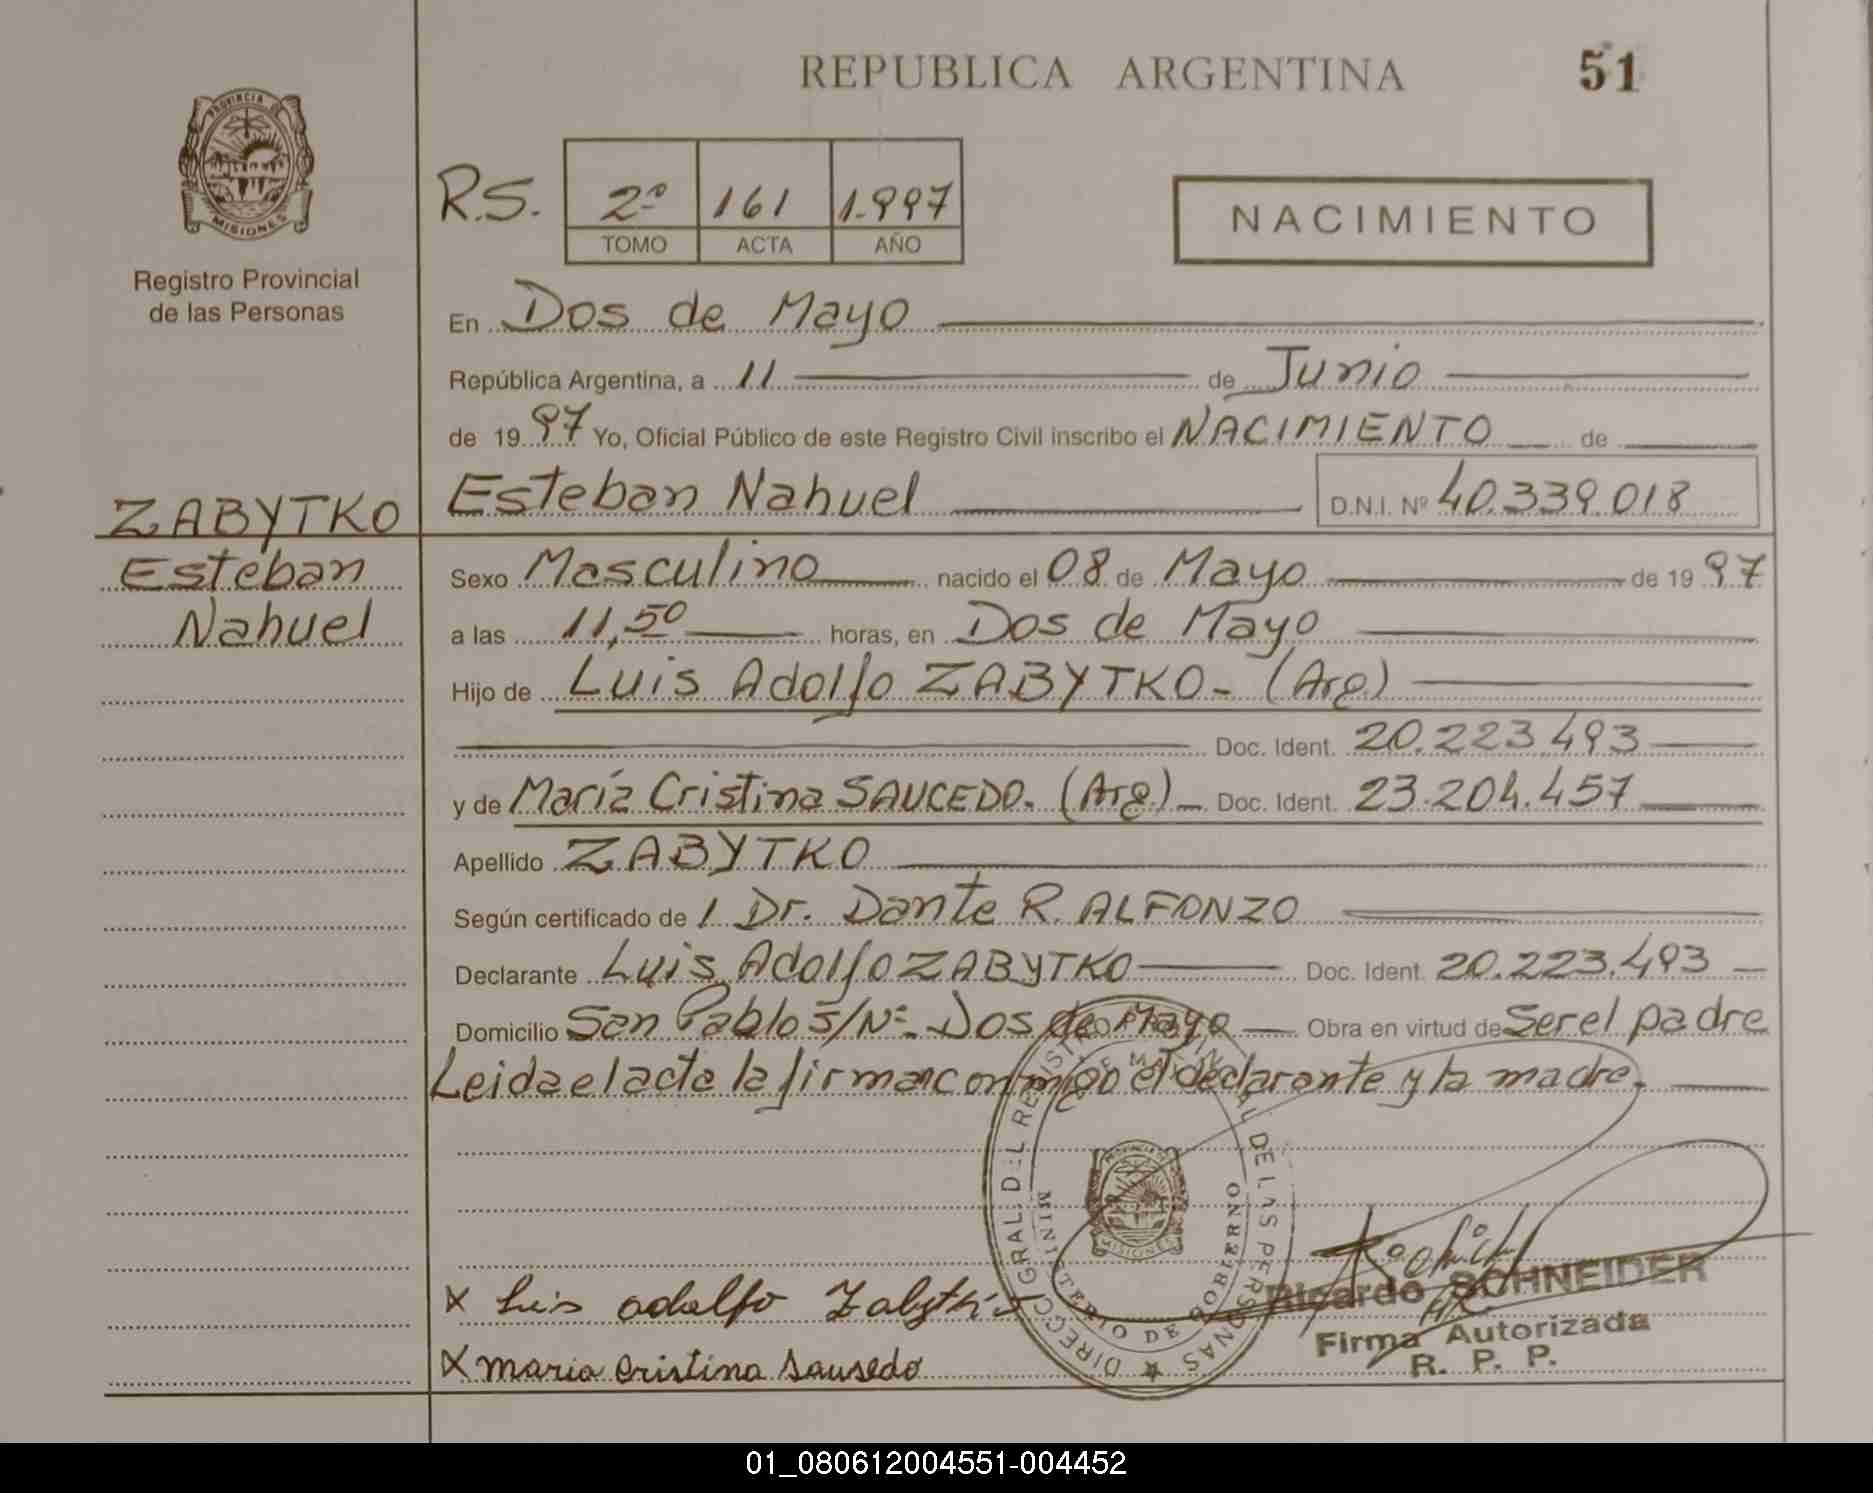 REPUBLICA ARGENTINA
51
PROVINCIA DE
MISIONES
Registro Provincial
de las Personas
R.S.
2º 161 1.997
TOMO ACTA AÑO
NACIMIENTO
En Dos de Mayo
República Argentina, a 11 de Junio
de 1997 Yo, Oficial Público de este Registro Civil inscribo el NACIMIENTO de
Esteban Nahuel D.N.I. Nº 40.339.018
ZABYTKO
Esteban
Nahuel
Sexo Masculino nacido el 08 de Mayo de 1997
a las 11,50 horas, en Dos de Mayo
Hijo de Luis Adolfo ZABYTKO- (Arg)
Doc. Ident. 20.223.493
y de María Cristina SAUCEDO. (Arg) Doc. Ident. 23.204.457
Apellido ZABYTKO
Según certificado de / Dr. Dante R. ALFONZO
Declarante Luis Adolfo ZABYTKO Doc. Ident. 20.223.493
Domicilio San Pablo S/Nº Dos de Mayo Obra en virtud de Ser el padre
Leida el acta la firman conmigo el declarante y la madre.
DIRECC. GRAL. DEL REGISTRO PROVINCIAL DE LAS PERSONAS
MINISTERIO DE GOBIERNO
MISIONES
X Luis adolfo Zabytko
Ricardo SCHNEIDER
Firma Autorizada
R. P. P.
X maria Cristina Sausedo
01_080612004551-004452